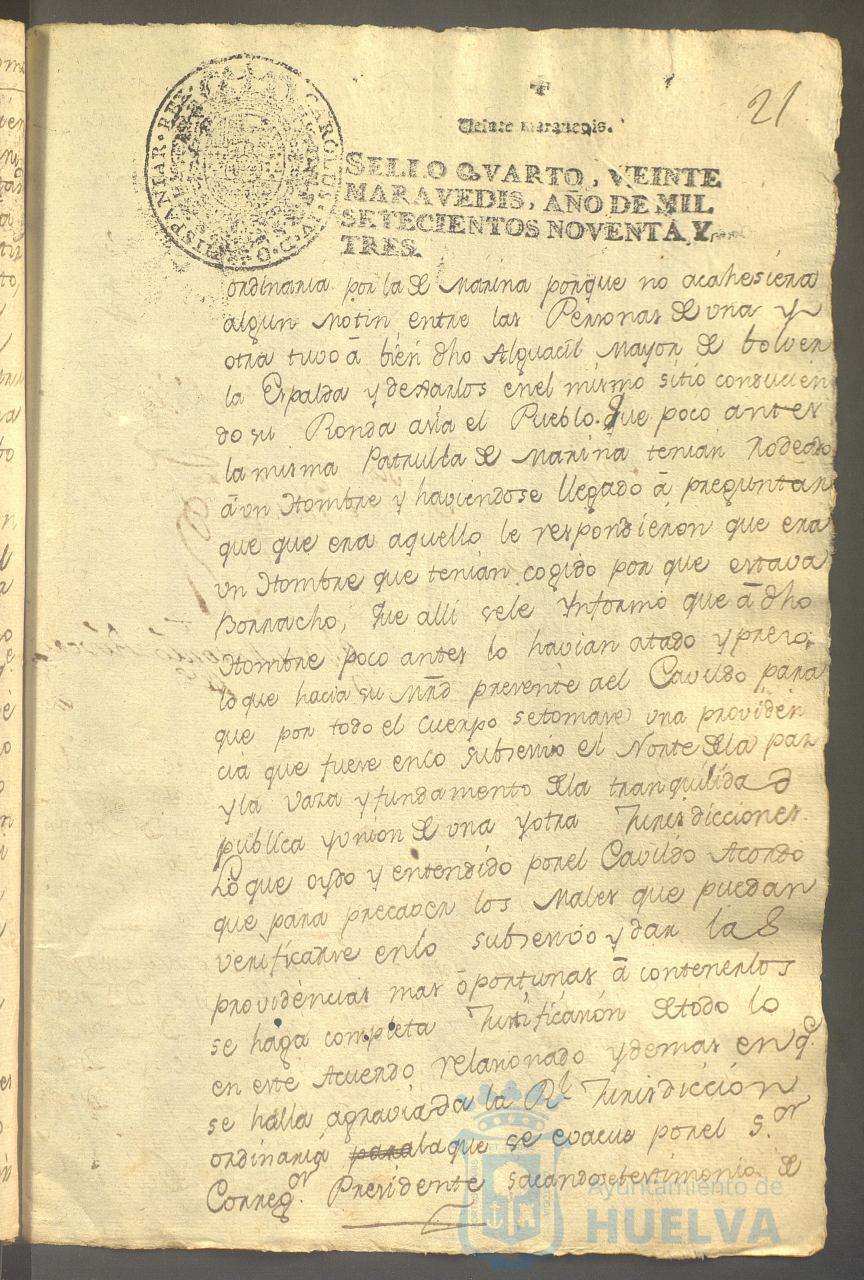 21
Veinte maravedis.
HISPANIAR·REX· CAROLUS·IV·D·G·
SELLO QVARTO, VEINTE
MARAVEDIS, AÑO DE MIL
SETECIENTOS NOVENTA Y
TRES.
ordinaria por la de Marina porque no acahesiera
algun Motin entre las Personas de una y
otra tuvo â bien dho Alguacil Mayor de bolver
la Espalda y dexarlos enel mismo sitio conducien
do su Ronda asia el Pueblo. Que poco antes
la misma Patrulla de Marina tenian Rodeado
â un Hombre y haviendose llegado â preguntar
que que era aquello le respondieron que era
un Hombre que tenian cogido por que estava
Borracho, que alli sele Ynformó que â dho
Hombre poco antes lo havian atado y preso,
lo que hacia su Mrd presente ael Cavildo para
que por todo el cuerpo setomase una providen
cia que fuese enlo subsesivo el Norte dela paz
y la vara y fundamento dela tranquilidad
publica y union de una y otra Jurisdicciones.
Lo que oydo y entendido porel Cavildo Acordó
que para precaver los Males que puedan
verificarse enlo subsesivo y dar las
providencias mas oportunas â contenerlos
se haga completa Justificación detodo lo
en este Acuerdo relacionado y demas en q.
se halla agraviada la Rl. Jurisdicción
ordinaria para la que se evacue porel S.or
Correg.or Presidente sacandose testimonio de
Ayuntamiento de
HUELVA